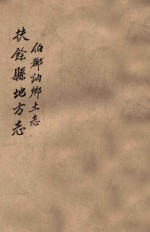 伯都訥鄉土志
扶餘縣地方志